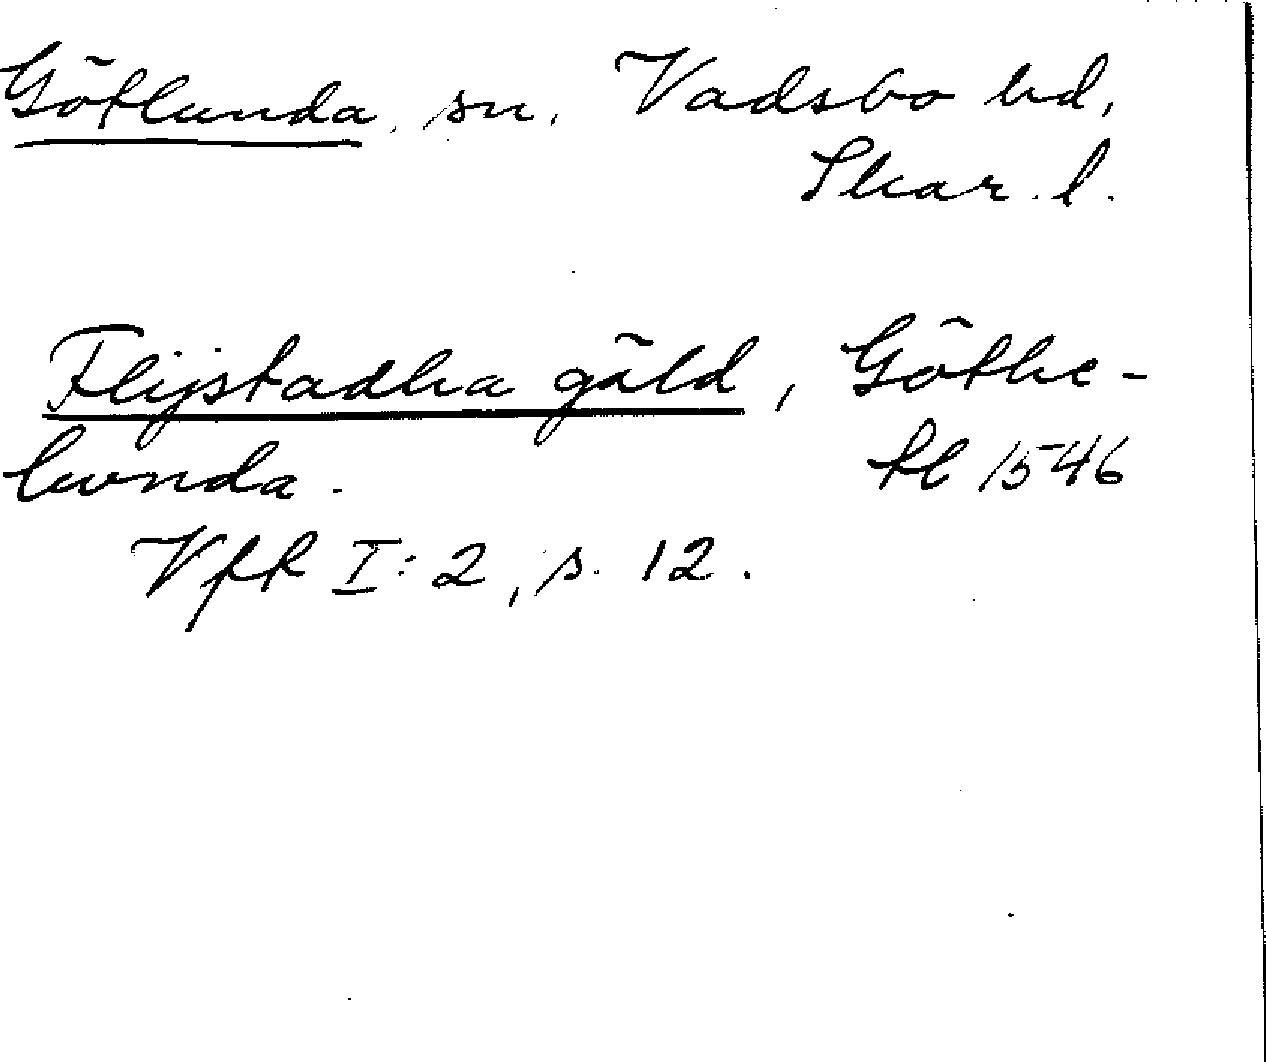 Götlunda, sn, Vadsbo hd,
Skar. l.
Flijstadha gäld, Göthe-
lwnda. fl 1546
VfR I:2, s. 12.